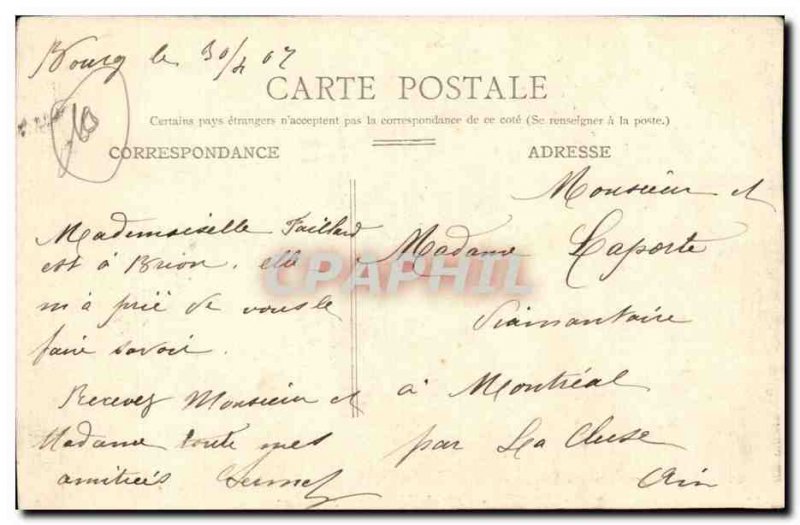 Bourg le 30/4 07
10
CARTE POSTALE
Certains pays étrangers n'acceptent pas la correspondance de ce coté (Se renseigner à la poste.)
CORRESPONDANCE
Mademoiselle Faillard
est à Brion. elle
m'a prié de vous le
faire savoir.
Recevez Monsieur et
Madame toute mes
amitiées
ADRESSE
Monsieur et
Madame Laporte
Diamantaire
à Montréal
par La Cluse
Ain
CPAPHIL